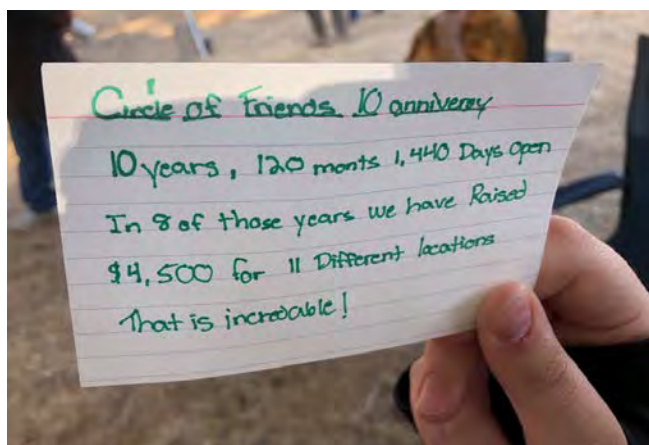 Circle of Friends 10 anniversy
10 years, 120 monts 1,440 Days Open
In 8 of those years we have Raised
$4,500 for 11 Different locations
That is incredable!